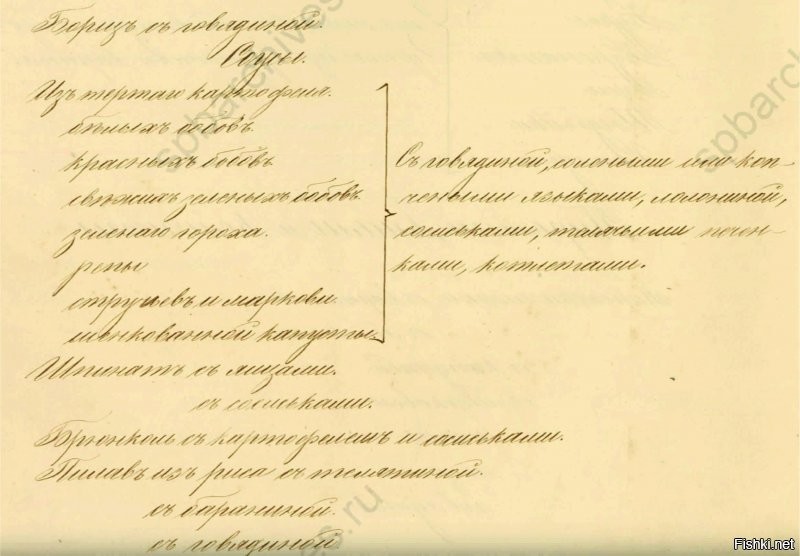 Боризъ съ говядиной.
Соусы.
Изъ тертаго картофеля.
бѣлыхъ бобовъ
красныхъ бобовъ
свѣжихъ зеленыхъ бобовъ
зеленаго гороха.
рѣпы
стручьевъ и маркови
шинкованной капусты.
Съ говядиной, солеными или коп-
чеными языками, солониной,
сосиськами, телячьими печен-
ками, котлетами.
Шпинатъ съ яйцами.
съ сосиськами.
Брюнколь съ картофелемъ и сосиськами.
Пилавъ изъ риса съ телятиной.
съ бараниной.
съ говядиной
spbarchives.ru
spbarch
Fishki.net